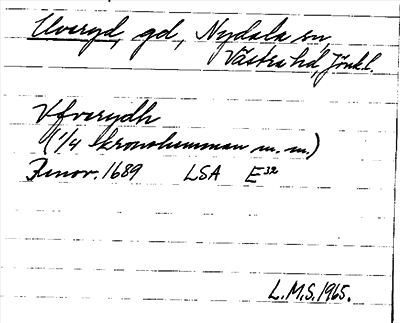 Uveryd, gd, Nydala sn,
Västra hd, Jönkl.
Vfverydh
(1/4 kronohemman m.m.)
Jenov. 1689 LSA E32
L.M.S. 1965.